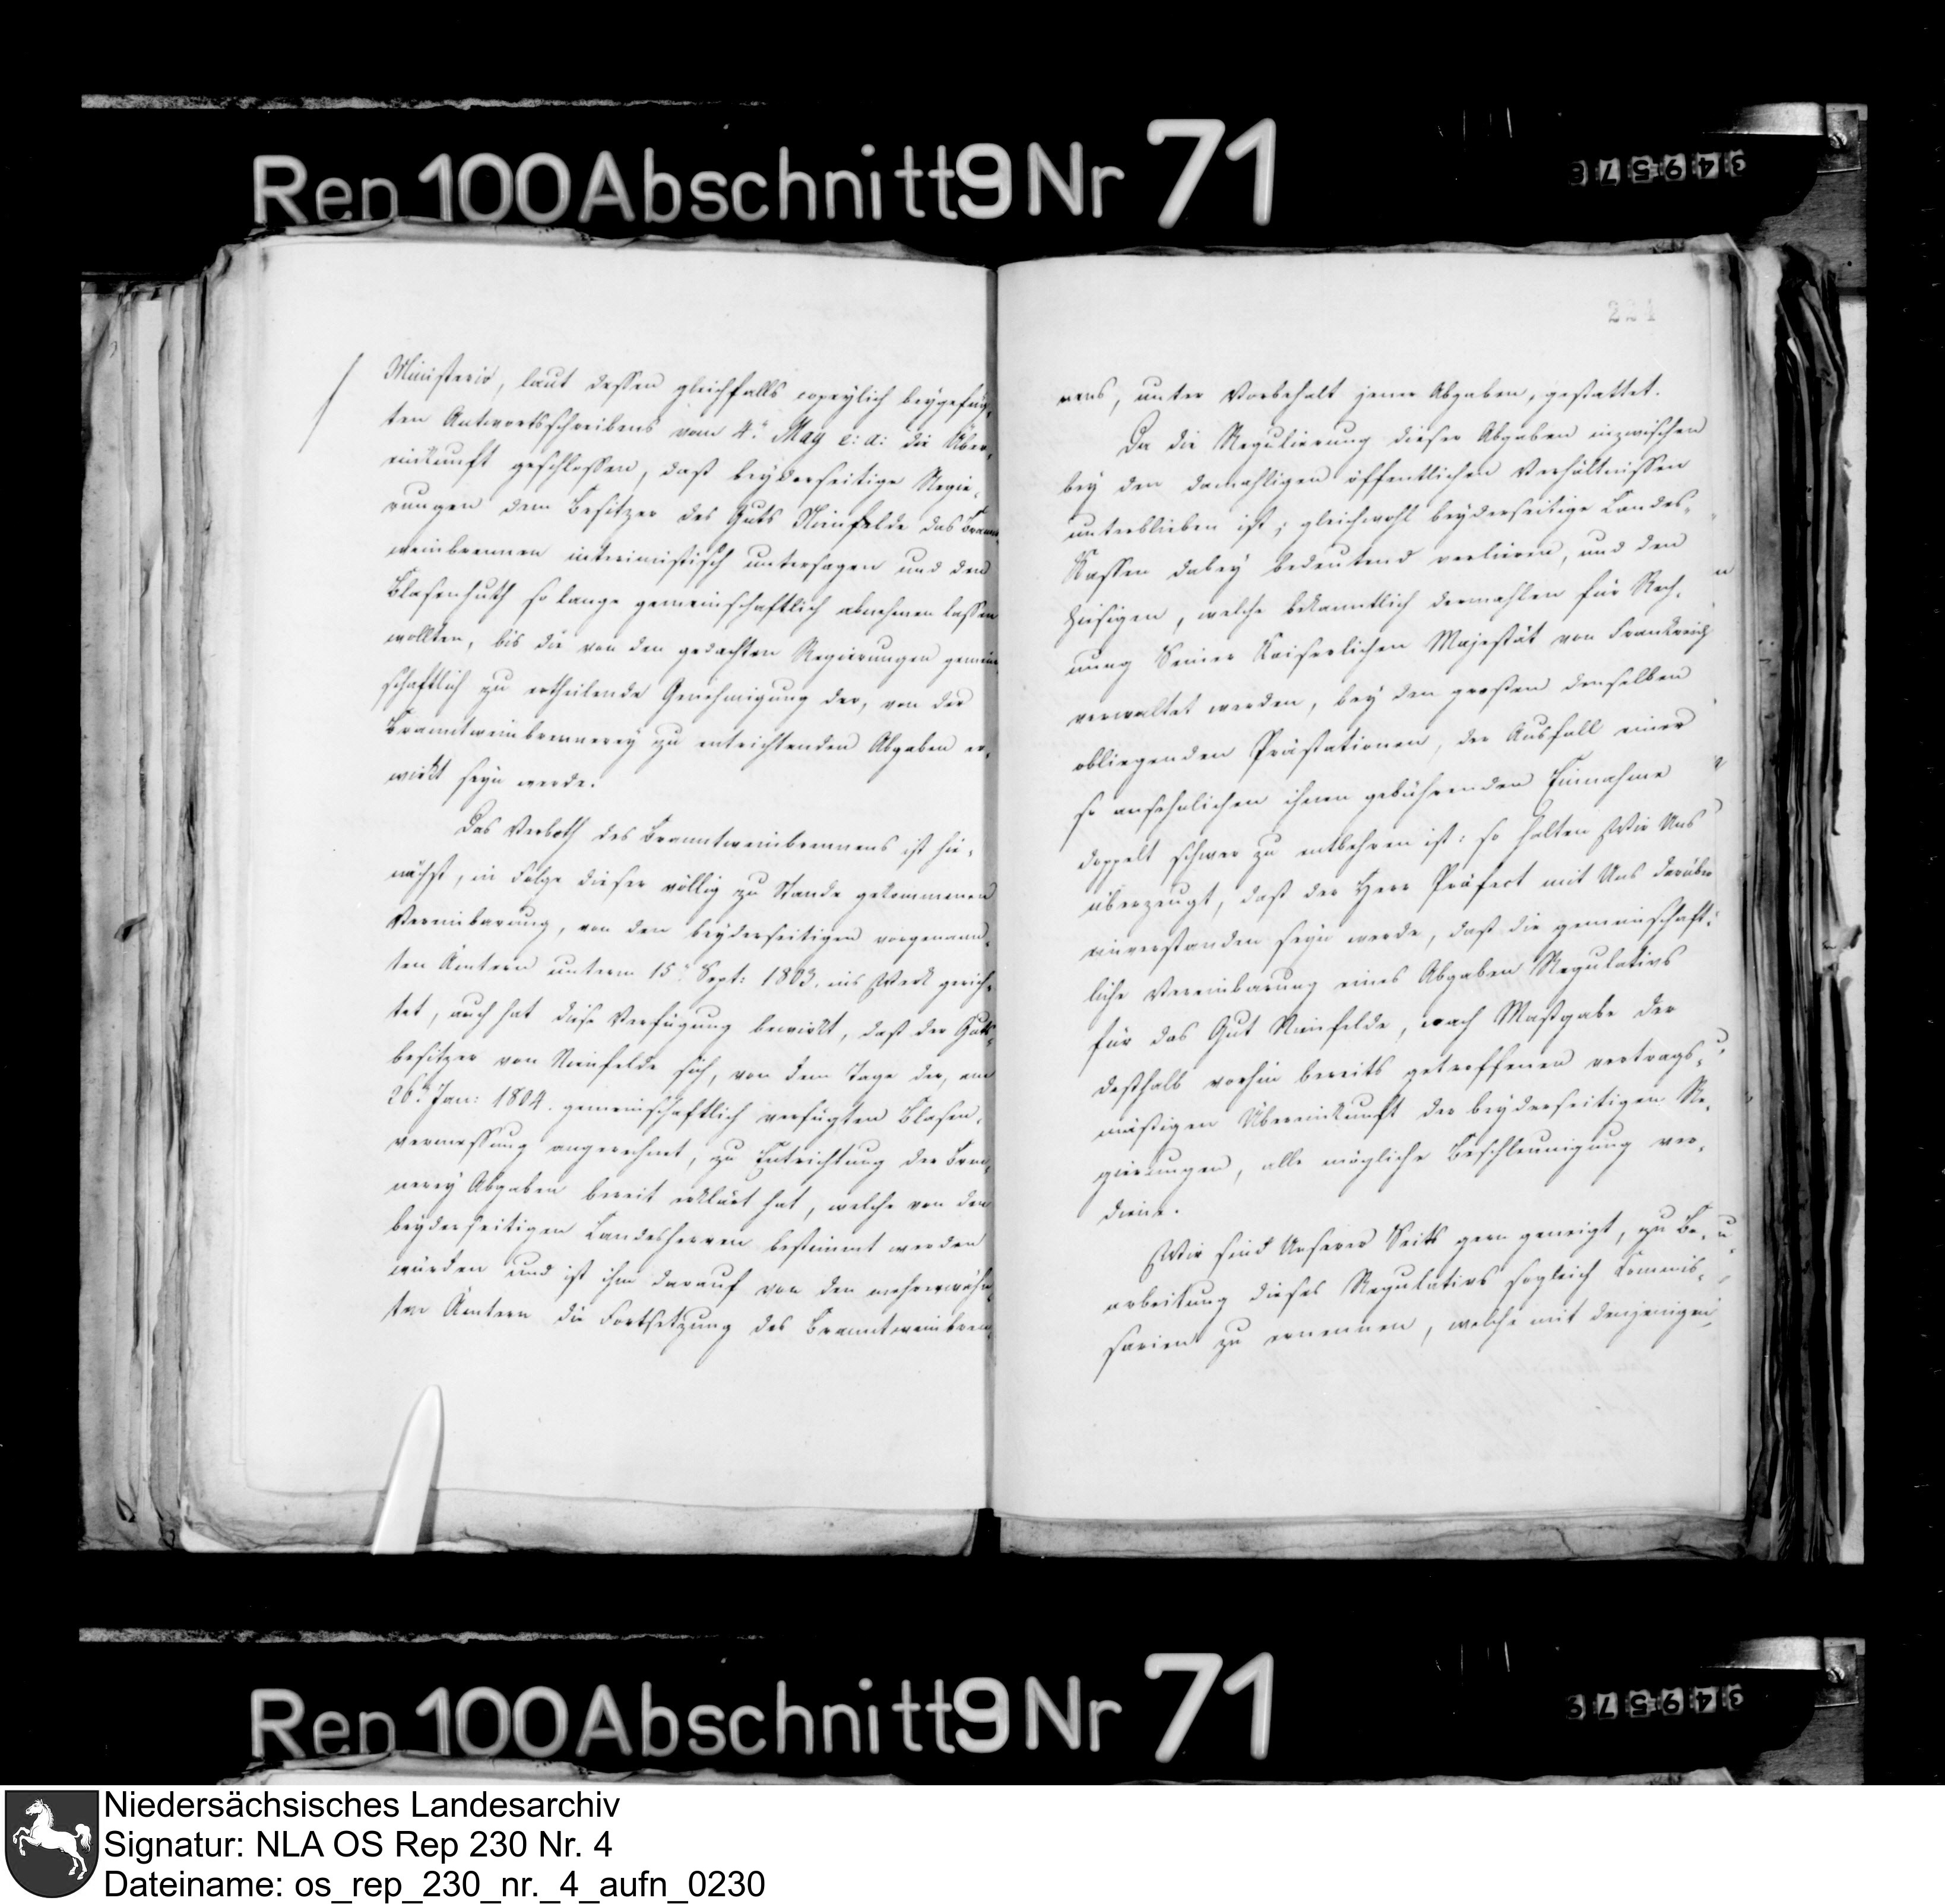 Rep 100 Abschnitt 9 Nr 71
349578
221
Ministerio, laut dessen gleichfalls copeylich beygefüg-
ten Antwortsschreibens vom 4.ⁿ May e: a: die Über-
einkunft geschlossen, daß beyderseitige Regie-
rungen dem Besitzer des Guts Nienfelde das Brannt-
weinbrennen interimistisch untersagen und den
Blasenhuth so lange gemeinschaftlich abnehmen lassen
wollten, bis die von den gedachten Regierungen gemein-
schaftlich zu ertheilende Genehmigung der, von der
Branntweinbrennerey zu entrichtenden Abgaben er-
wirkt seyn werde.
Das Verboth des Branntweinbrennens ist hie-
nächst, in Folge dieser völlig zu Stande gekommenen
Vereinbarung, von den beyderseitigen vorgenann-
ten Ämtern unterm 15.ⁿ Sept: 1803. ins Werk gerich-
tet, auch hat diese Verfügung bewirkt, daß der Guts-
besitzer von Nienfelde sich, von dem Tage der, am
26.ⁿ Jan: 1804. gemeinschaftlich verfügten Blasen-
vermessung angerechnet, zu Entrichtung der Bren-
nerey Abgaben bereit erklärt hat, welche von den
beyderseitigen Landesherren bestimmt werden
würden und ist ihm darauf von den mehrerwähn-
ten Ämtern die Fortsetzung des Branntweinbren-
nens, unter Vorbehalt jener Abgaben, gestattet.
Da die Regulierung dieser Abgaben inzwischen
bey den damahligen öffentlichen Verhältnissen
unterblieben ist; gleichwohl beyderseitige Landes-
Kassen dabey bedeutend verlieren, und den
hiesigen, welche bekanntlich dermahlen für Rech-
nung Seiner Kaiserlichen Majestät von Frankreich
verwaltet werden, bey den großen denselben
obliegenden Prästationen, der Ausfall einer
so ansehnlichen ihnen gebührenden Einnahme
doppelt schwer zu entbehren ist: so halten Wir Uns
überzeugt, daß der Herr Präfect mit Uns darüber
einverstanden seyn werde, daß die gemeinschaft-
liche Vereinbarung eines Abgaben Regulativs
für das Gut Nienfelde, nach Maßgabe der
deßhalb vorhin bereits getroffenen vertrags-
mäßigen Übereinkunft der beyderseitigen Re-
gierungen, alle mögliche Beschleunigung ver-
diene.
Wir sind Unserer Seits gern geneigt, zu Be-
arbeitung dieses Regulativs sogleich Commis-
sarien zu ernennen, welche mit denjenigen
Rep 100 Abschnitt 9 Nr 71
349579
Niedersächsisches Landesarchiv
Signatur: NLA OS Rep 230 Nr. 4
Dateiname: os_rep_230_nr._4_aufn_0230